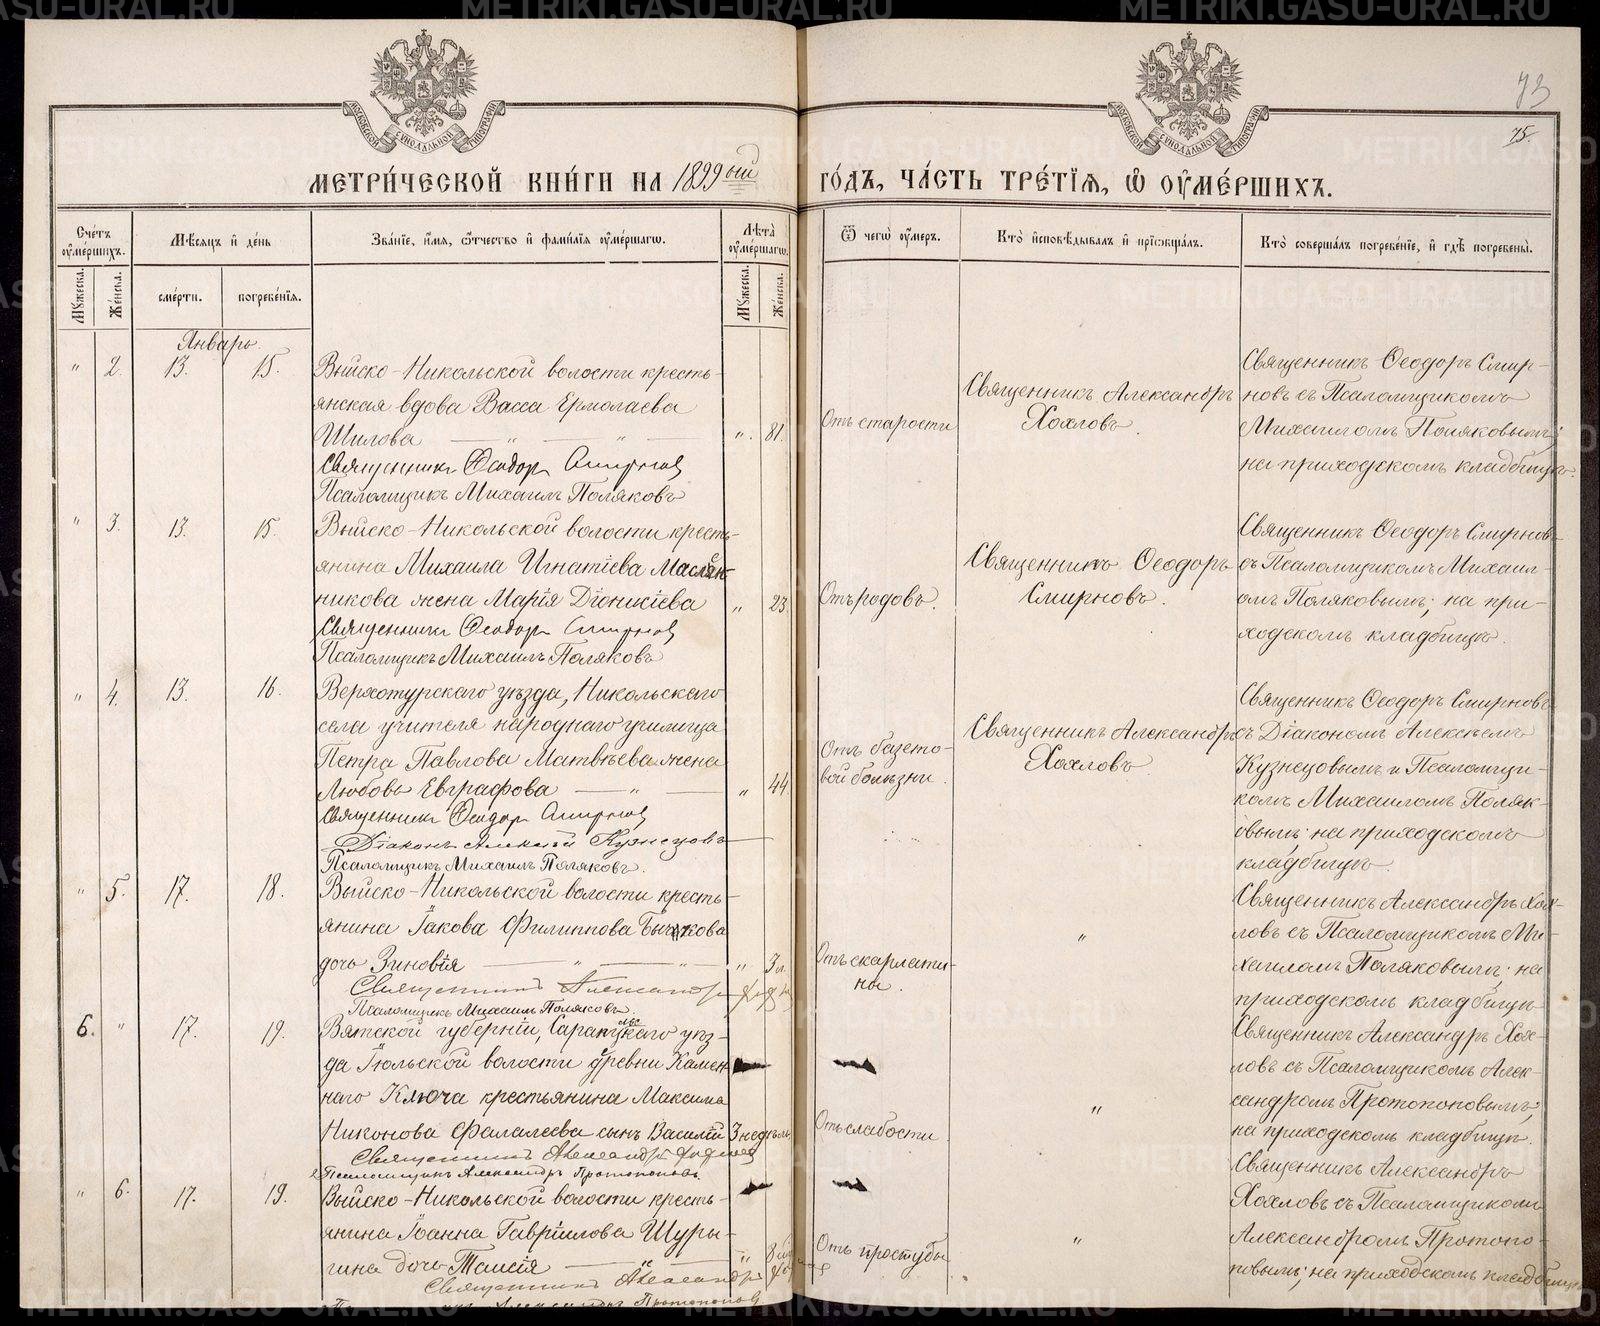 METRIKI.GASO-URAL.RU
МОСКОВСКОЙ СѴНОДАЛЬНОЙ ТИПОГРАФІИ
МОСКОВСКОЙ СѴНОДАЛЬНОЙ ТИПОГРАФІИ
73
75.
МЕТРИ́ЧЕСКОЙ КНИ́ГИ НА 1899 ый
ГО́ДЪ, ЧА́СТЬ ТРЕ́ТІЯ, Ѽ ОУМЕ́РШИХЪ.
Сче́тъ оумершихъ.
Мужеска.
Же́нска.
Мѣсяцъ и де́нь
сме́рти.
погребе́нія.
Зва́ніе, и́мя, ѻ́тчество и фами́лія оуме́ршагѡ.
Лѣта̀ оуме́ршагѡ.
Мужеска.
Же́нска.
Ѿ чегѡ̀ оу́меръ.
Кто̀ исповѣ́дывалъ и пріѡбща́лъ.
Кто̀ соверша́лъ погребе́ніе, и гдѣ̀ погребены̀.
Январь.
" 2. 13. 15.
Выйско-Никольской волости кресть-
янская вдова Васса Ермолаева
Шилова — " — " —
". 81.
Священникъ Ѳеодоръ Смирновъ
Псаломщикъ Михаилъ Поляковъ
Отъ старости
Священникъ Александръ
Хохловъ.
Священникъ Ѳеодоръ Смир-
новъ съ Псаломщикомъ
Михаиломъ Поляковымъ;
на приходскомъ кладбищѣ.
" 3. 13. 15.
Выйско-Никольской волости кресть-
янина Михаила Игнатіева Маслян-
никова жена Марія Діонисіева
" 23.
Священникъ Ѳеодоръ Смирновъ
Псаломщикъ Михаилъ Поляковъ
Отъ родовъ.
Священникъ Ѳеодоръ
Смирновъ.
Священникъ Ѳеодоръ Смирновъ
съ Псаломщикомъ Михаил-
омъ Поляковымъ; на при-
ходскомъ кладбищѣ.
" 4. 13. 16.
Верхотурскаго уѣзда, Никольскаго
села учителя народнаго училища
Петра Павлова Матвѣева жена
Любовь Евграфова — " —
" 44
Священникъ Ѳеодоръ Смирновъ
Діаконъ Алексѣй Кузнецовъ
Псаломщикъ Михаилъ Поляковъ.
вой болѣзни.
Священникъ Александръ
Хохловъ
Священникъ Ѳеодоръ Смирновъ
съ Діакономъ Алексѣемъ
Кузнецовымъ и Псаломщи-
комъ Михаиломъ Поляк-
овымъ; на приходскомъ
кладбищѣ.
" 5. 17. 18.
Выйско-Никольской волости кресть-
янина Іакова Филиппова Бычкова
дочь Зиновія — " — " —
" 3 л.
Священникъ Александръ Хохловъ
Псаломщикъ Михаилъ Поляковъ.
Отъ скарлати-
ны.
"
Священникъ Александръ Хох-
ловъ съ Псаломщикомъ Ми-
хаиломъ Поляковымъ; на
приходскомъ кладбищѣ
6. " 17. 19.
Вятской губерніи, Сарапульскаго уѣз-
да Іюльской волости дѣревни Камен-
наго Ключа крестьянина Максима
Никонова Фалалеева сынъ Василій
3 недѣль.
Священникъ Александръ Хохловъ
Псаломщикъ Александръ Протопоповъ.
Отъ слабости
"
Священникъ Александръ Хох-
ловъ съ Псаломщикомъ Алек-
сандромъ Протопоповымъ;
на приходскомъ кладбищѣ.
" 6. 17. 19.
Выйско-Никольской волости кресть-
янина Іоанна Гавріилова Щуры-
гина дочь Таисія — " —
" 8
Священникъ Александръ
Александръ Протопоповъ
Отъ простуды
"
Священникъ Александръ
Хохловъ съ Псаломщикомъ
Александромъ Протопо-
повымъ; на приходскомъ кладбищѣ